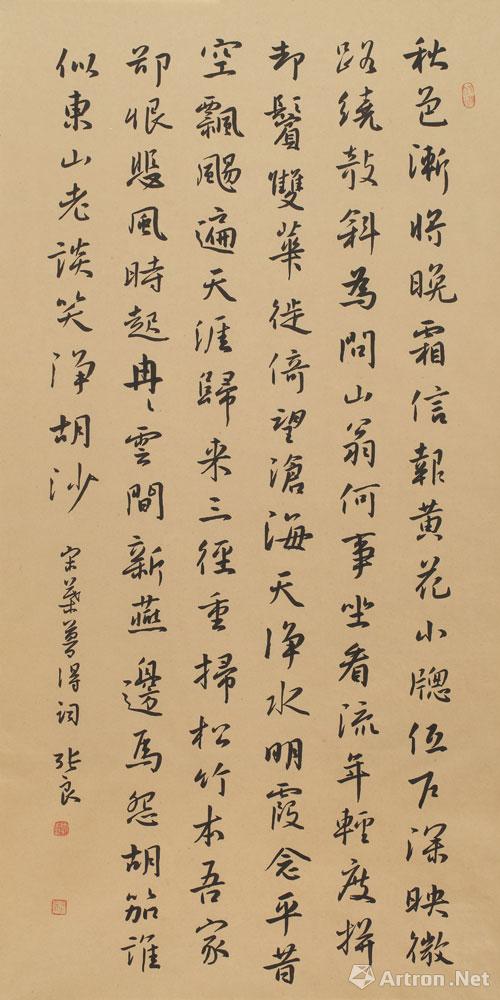 秋色漸將晚霜信報黃花小牕低戶深映微
路繞敧斜為問山翁何事坐看流年輕度拚
却鬢雙華徙倚望滄海天淨水明霞念平昔
空飄颺遍天涯歸来三徑重掃松竹本吾家
卻恨悲風時起冉〻雲間新燕邊馬怨胡笳誰
似東山老談笑淨胡沙
宋葉夢得詞 張良
Artron.Net